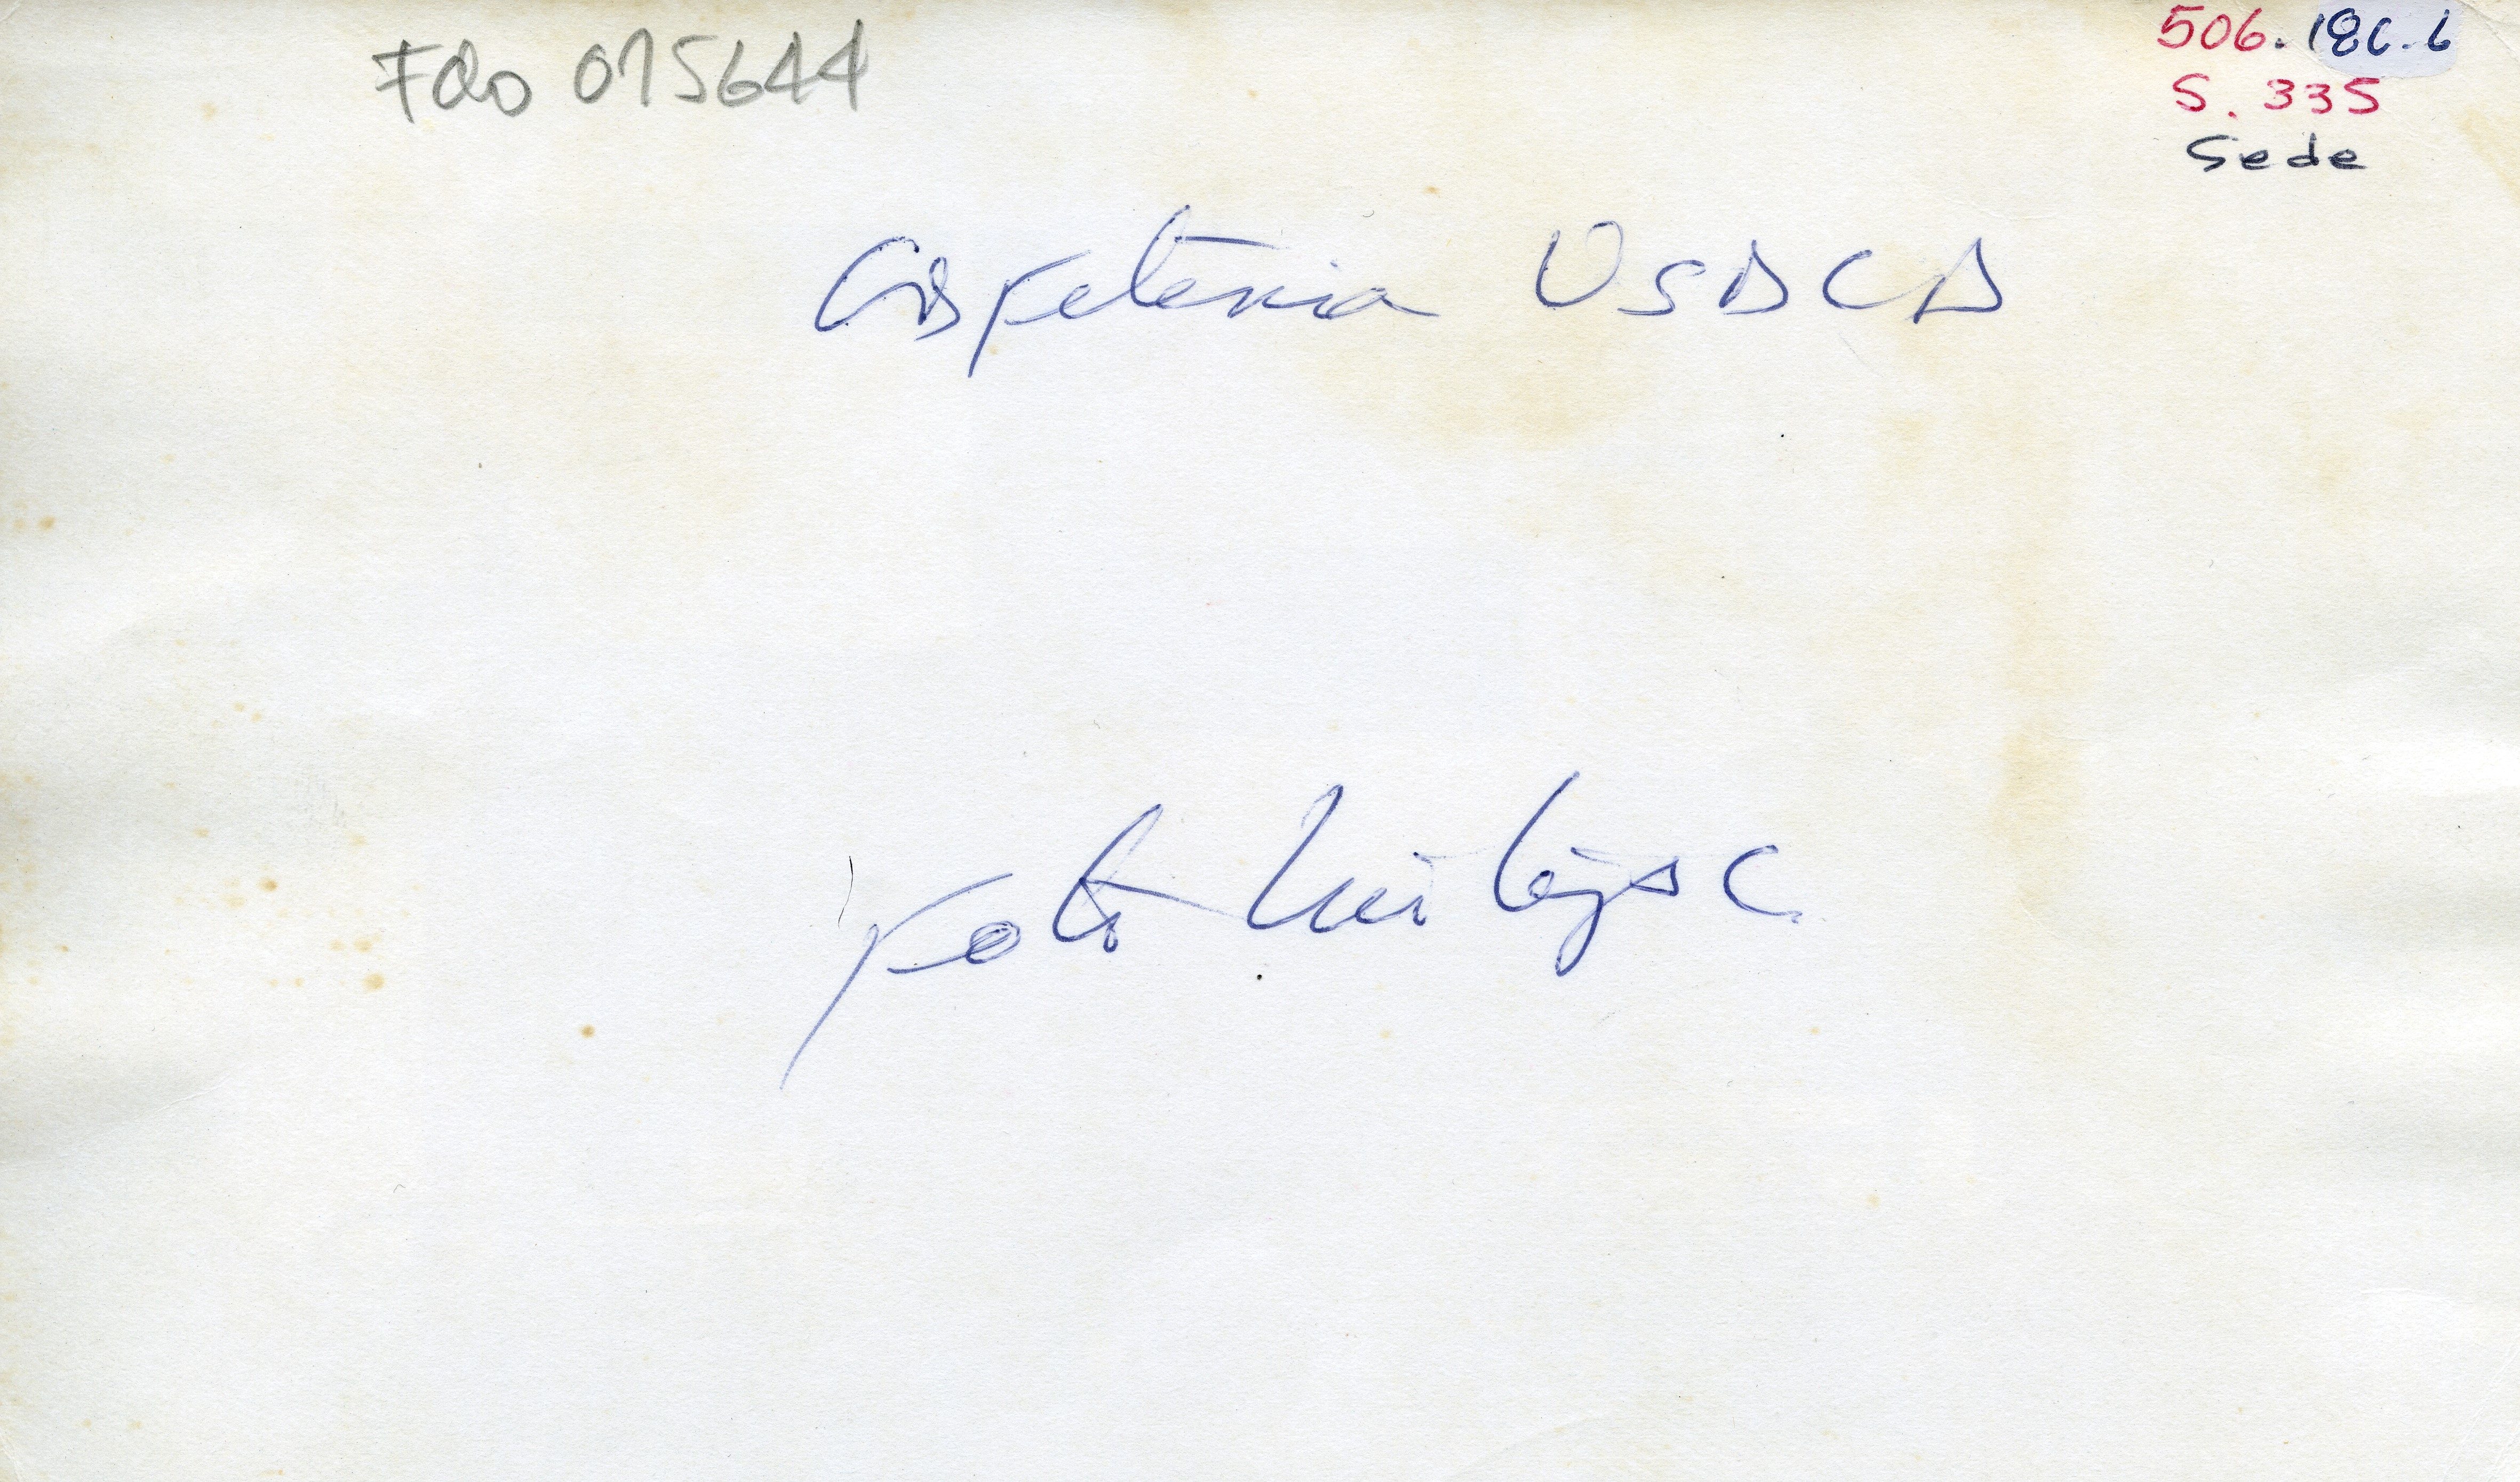 Fdo 015644
506.186.6
S. 335
Sede
Cafetería USACA
Foto Luis Lejsa C.